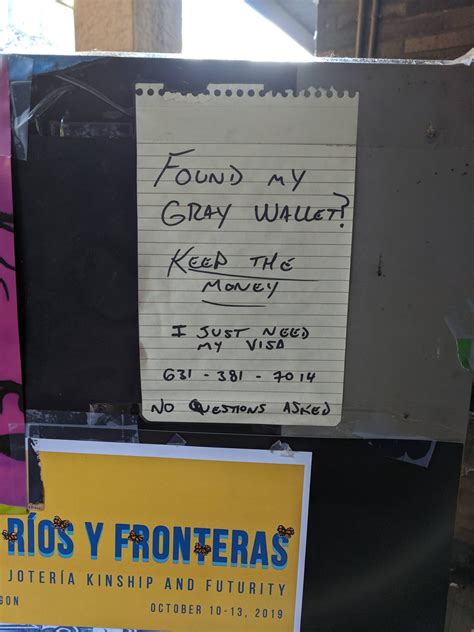 FOUND MY
GRAY WALLET?
KEEP THE
MONEY
I JUST NEED
MY VISA
631-381-7014
NO QUESTIONS ASKED
RÍOS Y FRONTERAS
JOTERÍA KINSHIP AND FUTURITY
GON
OCTOBER 10-13, 2019